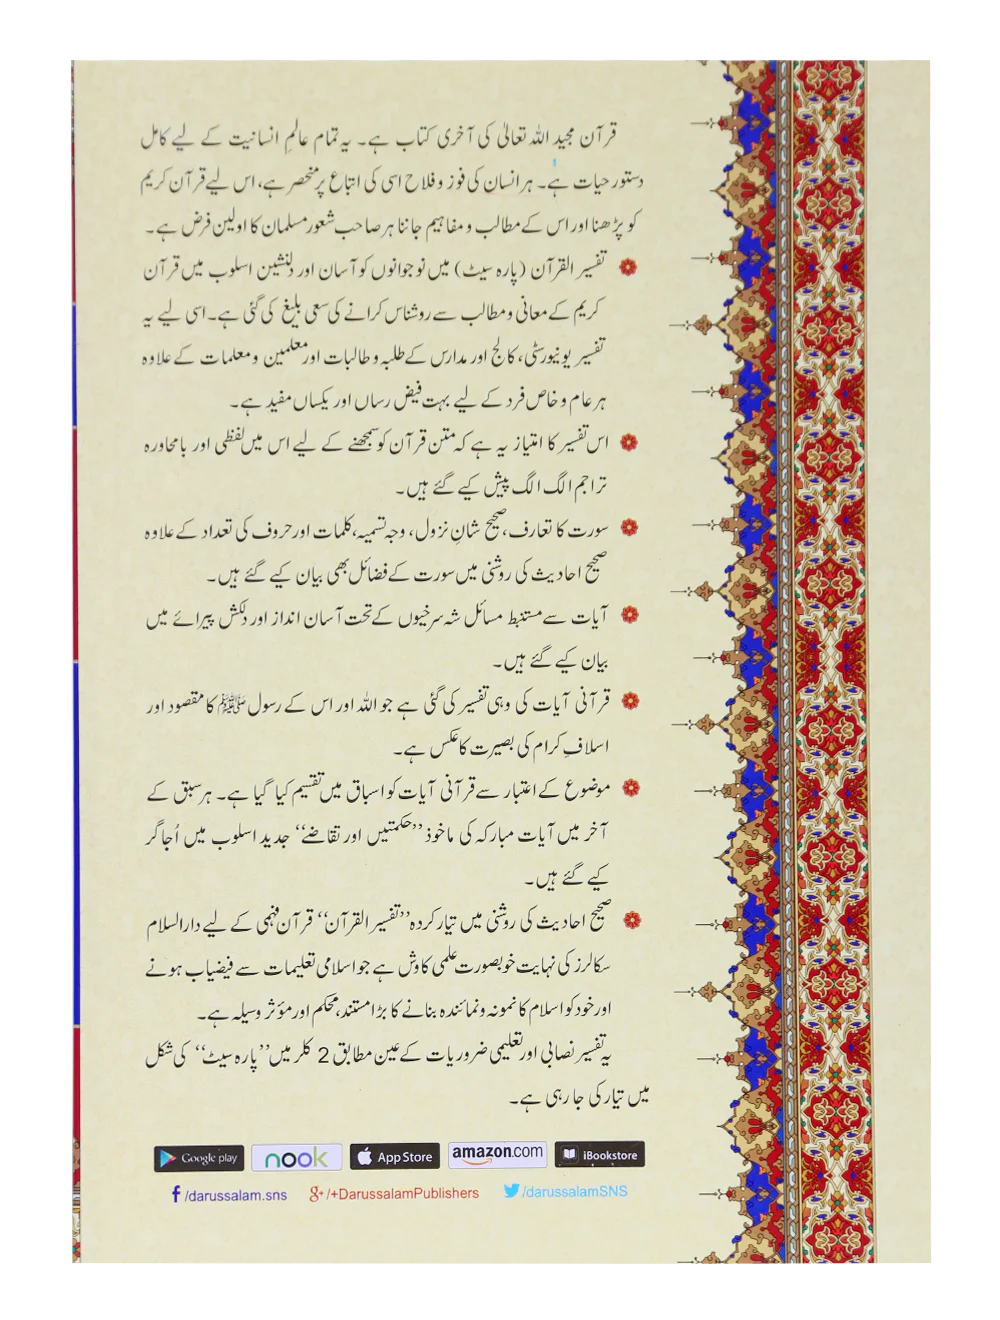 قرآن مجید اللہ تعالیٰ کی آخری کتاب ہے۔ یہ تمام عالمِ انسانیت کے لیے کامل
دستور حیات ہے۔ ہر انسان کی فوز و فلاح اسی کی اتباع پر منحصر ہے، اس لیے قرآن کریم
کو پڑھنا اور اس کے مطالب و مفاہیم جاننا ہر صاحب شعور مسلمان کا اولین فرض ہے۔
تفسیر القرآن (پارہ سیٹ) میں نوجوانوں کو آسان اور دلنشین اسلوب میں قرآن
کریم کے معانی و مطالب سے روشناس کرانے کی سعی بلیغ کی گئی ہے۔ اسی لیے یہ
تفسیر یونیورسٹی، کالج اور مدارس کے طلبہ و طالبات اور معلمین و معلمات کے علاوہ
ہر عام و خاص فرد کے لیے بہت فیض رساں اور یکساں مفید ہے۔
اس تفسیر کا امتیاز یہ ہے کہ متن قرآن کو سمجھنے کے لیے اس میں لفظی اور بامحاورہ
تراجم الگ الگ پیش کیے گئے ہیں۔
سورت کا تعارف، صحیح شانِ نزول، وجہ تسمیہ، کلمات اور حروف کی تعداد کے علاوہ
صحیح احادیث کی روشنی میں سورت کے فضائل بھی بیان کیے گئے ہیں۔
آیات سے مستنبط مسائل شہ سرخیوں کے تحت آسان انداز اور دلکش پیرائے میں
بیان کیے گئے ہیں۔
قرآنی آیات کی وہی تفسیر کی گئی ہے جو اللہ اور اس کے رسول ﷺ کا مقصود اور
اسلافِ کرام کی بصیرت کا عکس ہے۔
موضوع کے اعتبار سے قرآنی آیات کو اسباق میں تقسیم کیا گیا ہے۔ ہر سبق کے
آخر میں آیات مبارکہ کی ماخوذ ’’حکمتیں اور تقاضے‘‘ جدید اسلوب میں اُجاگر
کیے گئے ہیں۔
صحیح احادیث کی روشنی میں تیار کردہ ’’تفسیر القرآن‘‘ قرآن فہمی کے لیے دارالسلام
سکالرز کی نہایت خوبصورت علمی کاوش ہے جو اسلامی تعلیمات سے فیضیاب ہونے
اور خود کو اسلام کا نمونہ و نمائندہ بنانے کا بڑا مستند، محکم اور مؤثر وسیلہ ہے۔
یہ تفسیر نصابی اور تعلیمی ضروریات کے عین مطابق 2 کلر میں ’’پارہ سیٹ‘‘ کی شکل
میں تیار کی جا رہی ہے۔
Google play nook App Store amazon.com iBookstore
f /darussalam.sns g+ /+DarussalamPublishers /darussalamSNS